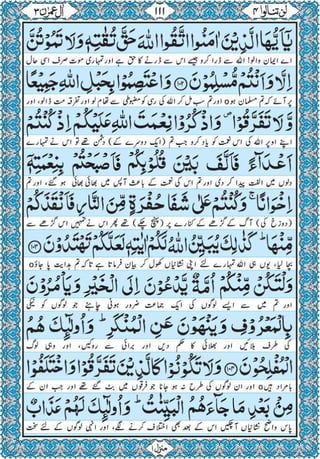 لن تنالوا ٤
١١١
اٰل عمرٰن ٣
يٰۤاَيُّهَا الَّذِيْنَ اٰمَنُوا اتَّقُوا اللّٰهَ حَقَّ تُقٰتِهٖ وَلَا تَمُوْتُنَّ
اے ایمان والو! اللہ سے ڈرا کرو جیسے اس سے ڈرنے کا حق ہے اور تمہاری موت صرف اسی حال
اِلَّا وَاَنْتُمْ مُّسْلِمُوْنَ ﴿١٠٢﴾ وَاعْتَصِمُوْا بِحَبْلِ اللّٰهِ جَمِيْعًا
پر آئے کہ تم مسلمان ہو o اور تم سب مل کر اللہ کی رسی کو مضبوطی سے تھام لو اور تفرقہ مت ڈالو، اور
وَّلَا تَفَرَّقُوْا ۪ وَاذْكُرُوْا نِعْمَتَ اللّٰهِ عَلَيْكُمْ اِذْ كُنْتُمْ
اپنے اوپر اللہ کی اس نعمت کو یاد کرو جب تم (ایک دوسرے کے) دشمن تھے تو اس نے تمہارے
اَعْدَآءً فَاَلَّفَ بَيْنَ قُلُوْبِكُمْ فَاَصْبَحْتُمْ بِنِعْمَتِهٖۤ
دلوں میں الفت پیدا کر دی اور تم اس کی نعمت کے باعث آپس میں بھائی بھائی ہو گئے، اور تم
اِخْوَانًا ۚ وَكُنْتُمْ عَلٰى شَفَا حُفْرَةٍ مِّنَ النَّارِ فَاَنْقَذَكُمْ
(دوزخ کی) آگ کے گڑھے کے کنارے پر (پہنچ چکے) تھے پھر اس نے تمہیں اس گڑھے سے
مِّنْهَا ؕ كَذٰلِكَ يُبَيِّنُ اللّٰهُ لَكُمْ اٰيٰتِهٖ لَعَلَّكُمْ تَهْتَدُوْنَ ﴿١٠٣﴾
بچا لیا، یوں ہی اللہ تمہارے لئے اپنی نشانیاں کھول کر بیان فرماتا ہے تاکہ تم ہدایت پا جاؤ o
وَلْتَكُنْ مِّنْكُمْ اُمَّةٌ يَّدْعُوْنَ اِلَى الْخَيْرِ وَيَاْمُرُوْنَ
اور تم میں سے ایسے لوگوں کی ایک جماعت ضرور ہونی چاہئے جو لوگوں کو نیکی
بِالْمَعْرُوْفِ وَيَنْهَوْنَ عَنِ الْمُنْكَرِ ؕ وَاُولٰٓئِكَ هُمُ
کی طرف بلائیں اور بھلائی کا حکم دیں اور برائی سے روکیں، اور وہی لوگ
الْمُفْلِحُوْنَ ﴿١٠٤﴾ وَلَا تَكُوْنُوْا كَالَّذِيْنَ تَفَرَّقُوْا وَاخْتَلَفُوْا
بامراد ہیں o اور ان لوگوں کی طرح نہ ہو جانا جو فرقوں میں بٹ گئے تھے اور جب ان کے
مِنْۢ بَعْدِ مَا جَآءَهُمُ الْبَيِّنٰتُ ؕ وَاُولٰٓئِكَ لَهُمْ عَذَابٌ
پاس واضح نشانیاں آ چکیں اس کے بعد بھی اختلاف کرنے لگے، اور انہی لوگوں کے لئے سخت
منزل